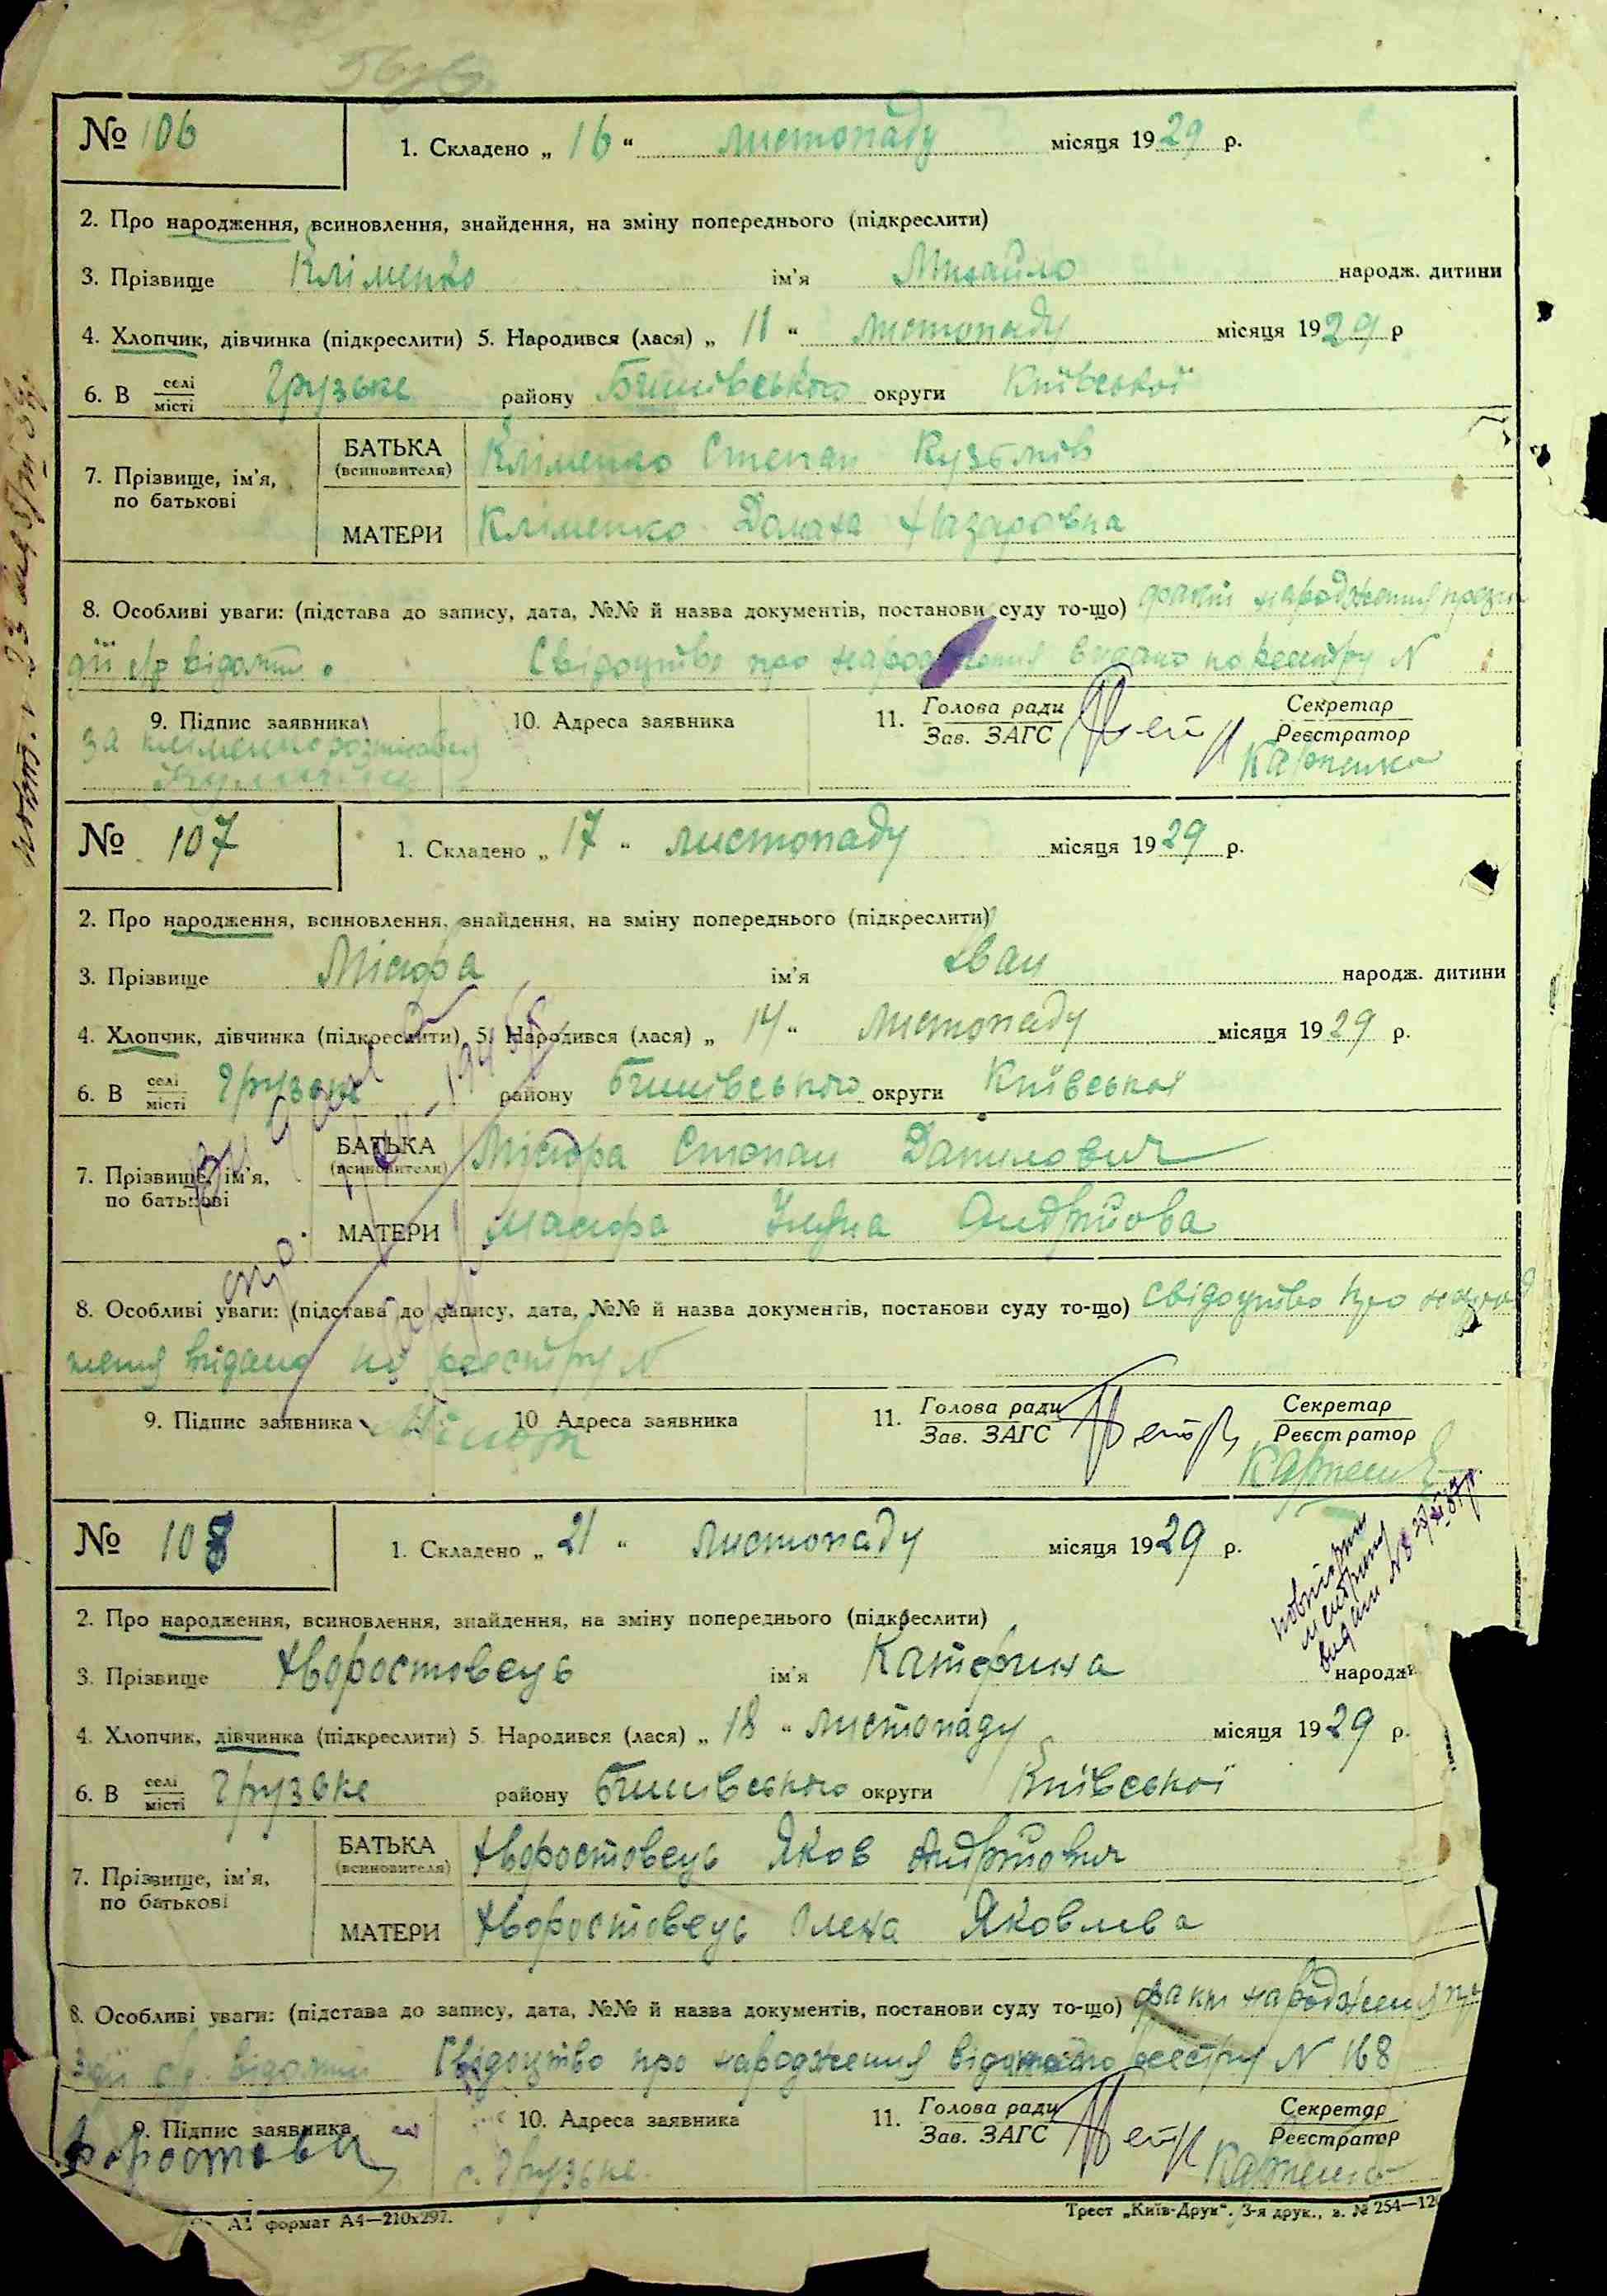 № 106
1. Складено „ 16 “ листопаду місяця 1929 р.
2. Про народження, всиновлення, знайдення, на зміну попереднього (підкреслити)
3. Прізвище Кліменко ім'я Михайло народж. дитини
4. Хлопчик, дівчинка (підкреслити) 5. Народився (лася) „ 11 “ листопаду місяця 1929 р
6. В селі місті Грузьке району Бишівського округи Київської
7. Прізвище, ім'я, по батькові
БАТЬКА (всиновителя) Кліменко Степан Кузьмів
МАТЕРИ Кліменко Домаха Назаровна
8. Особливі уваги: (підстава до запису, дата, №№ й назва документів, постанови суду то-що) факт народження
Свідоцтво про народження видано по реєстру N
9. Підпис заявника 10. Адреса заявника 11. Голова ради Зав. ЗАГС Секретар Реєстратор
за
Карпенко
№ 107
1. Складено „ 17 “ листопаду місяця 1929 р.
2. Про народження, всиновлення, знайдення, на зміну попереднього (підкреслити)
3. Прізвище Місюра ім'я Іван народж. дитини
4. Хлопчик, дівчинка (підкреслити) 5. Народився (лася) „ 14 “ листопаду місяця 1929 р.
6. В селі місті Грузьке району Бишівського округи Київської
7. Прізвище, ім'я, по батькові
БАТЬКА (всиновителя) Місюра Степан Данилович
МАТЕРИ Місюра Андрійова
8. Особливі уваги: (підстава до запису, дата, №№ й назва документів, постанови суду то-що) свідоцтво про народ
ження видано по реєстру N
9. Підпис заявника 10 Адреса заявника 11. Голова ради Зав. ЗАГС Секретар Реєстратор
Карпенко
№ 108
1. Складено „ 21 “ листопаду місяця 1929 р.
2. Про народження, всиновлення, знайдення, на зміну попереднього (підкреслити)
3. Прізвище Хворостовець ім'я Катерина народж
4. Хлопчик, дівчинка (підкреслити) 5. Народився (лася) „ 18 “ листопаду місяця 1929 р.
6. В селі місті Грузьке району Бишівського округи Київської
7. Прізвище, ім'я, по батькові
БАТЬКА (всиновителя) Хворостовець Яков Андрійович
МАТЕРИ Хворостовець Олена Яковлева
8. Особливі уваги: (підстава до запису, дата, №№ й назва документів, постанови суду то-що) факт народження
Свідоцтво про народження реєстру N 168
9. Підпис заявника 10. Адреса заявника 11. Голова ради Зав. ЗАГС Секретар Реєстратор
с. Грузьке. Карпенко
формат А4—210х297. Трест „Київ-Друк“. 3-я друк., з. № 254—12